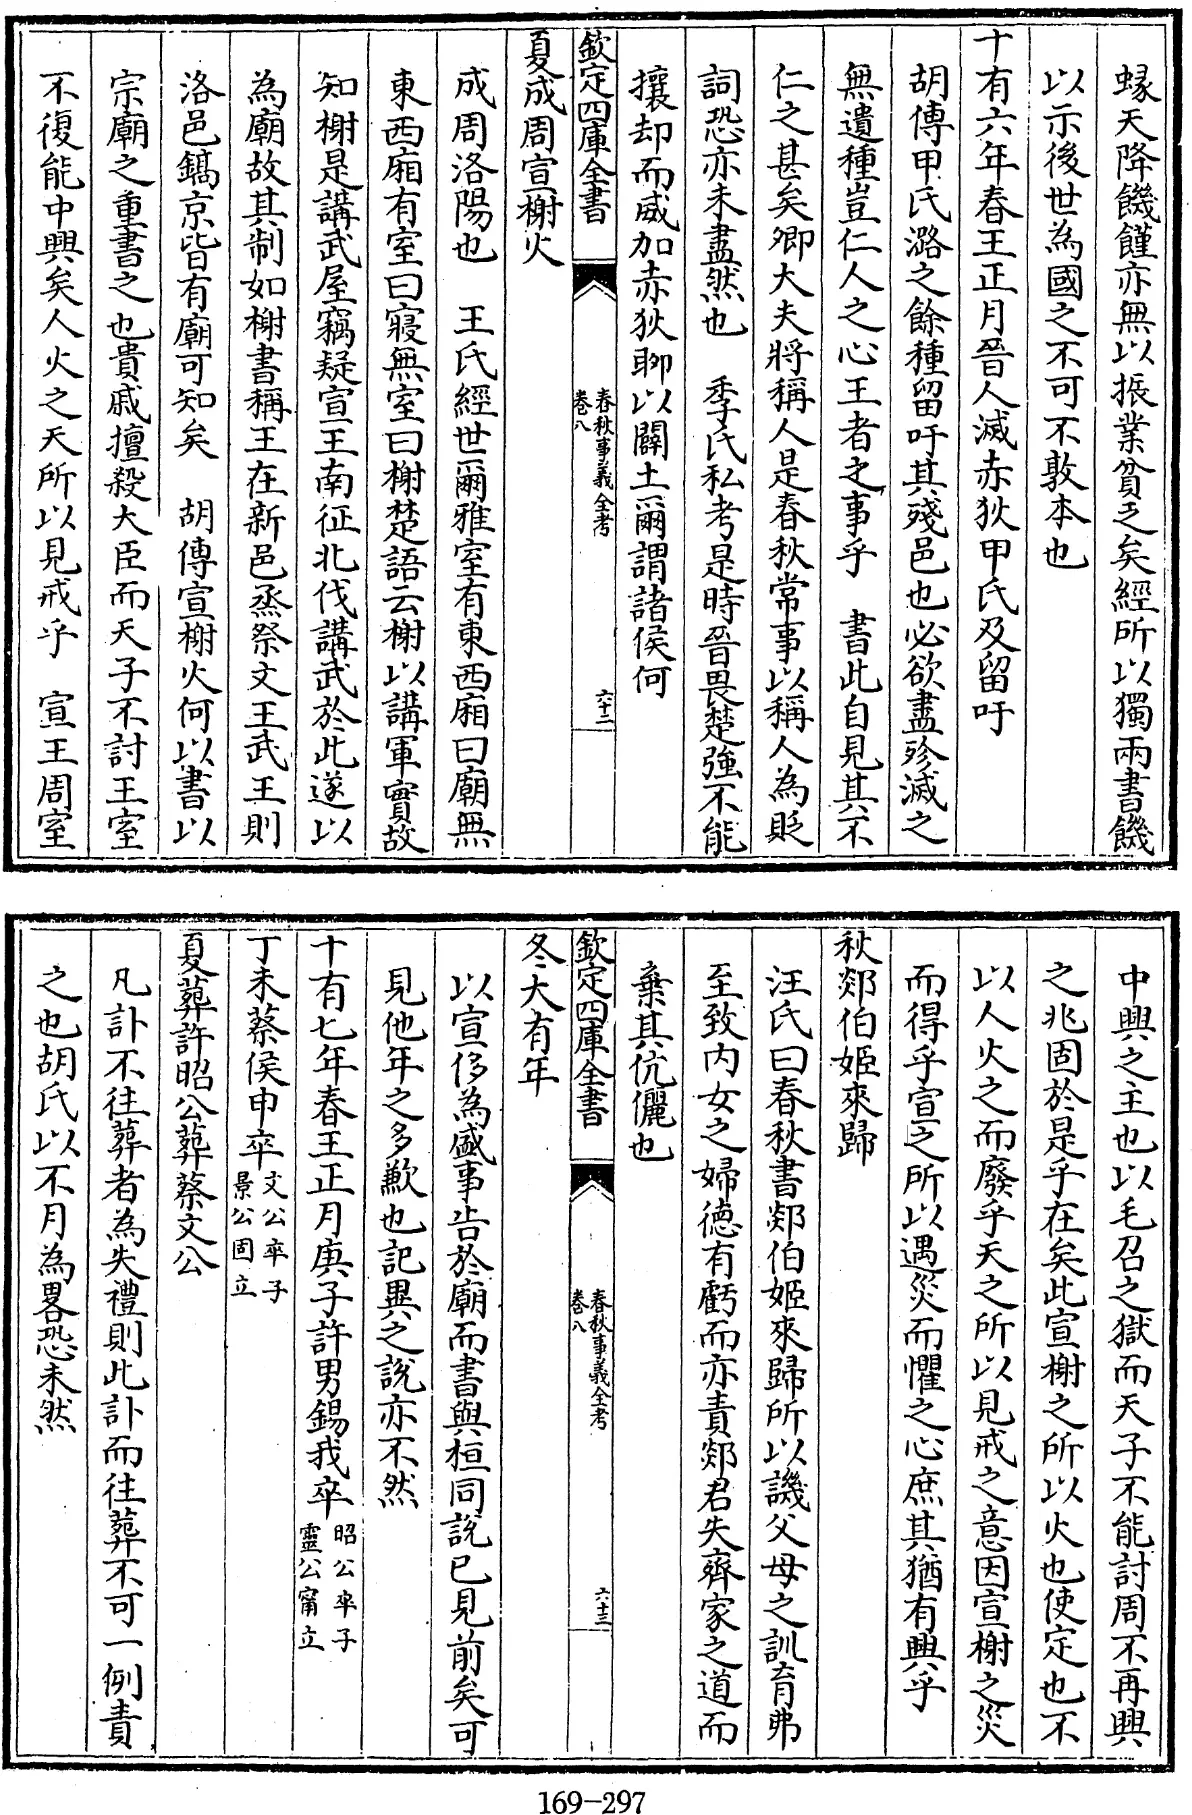 蝝天降饑饉亦無以振業貧乏矣經所以獨兩書饑
以示後世為國之不可不敦本也
十有六年春王正月晉人滅赤狄甲氏及留吁
胡傳甲氏潞之餘種留吁其殘邑也必欲盡殄滅之
無遺種豈仁人之心王者之事乎　書此自見其不
仁之甚矣卿大夫將稱人是春秋常事以稱人為貶
詞恐亦未盡然也　季氏私考是時晉畏楚強不能
攘却而威加赤狄聊以闢土爾謂諸侯何
欽定四庫全書
春秋事義全考
卷八
六十二
夏成周宣榭火
成周洛陽也　王氏經世爾雅室有東西廂曰廟無
東西廂有室曰寢無室曰榭楚語云榭以講軍實故
知榭是講武屋竊疑宣王南征北伐講武於此遂以
為廟故其制如榭書稱王在新邑烝祭文王武王則
洛邑鎬京皆有廟可知矣　胡傳宣榭火何以書以
宗廟之重書之也貴戚擅殺大臣而天子不討王室
不復能中興矣人火之天所以見戒乎　宣王周室
中興之主也以毛召之獄而天子不能討周不再興
之兆固於是乎在矣此宣榭之所以火也使定也不
以人火之而廢乎天之所以見戒之意因宣榭之災
而得乎宣之所以遇災而懼之心庶其猶有興乎
秋郯伯姬來歸
汪氏曰春秋書郯伯姬來歸所以譏父母之訓育弗
至致內女之婦德有虧而亦責郯君失齊家之道而
棄其伉儷也
欽定四庫全書
春秋事義全考
卷八
六十三
冬大有年
以宣侈為盛事告於廟而書與桓同說已見前矣可
見他年之多歉也記異之說亦不然
十有七年春王正月庚子許男錫我卒昭公卒子靈公甯立
丁未蔡侯申卒文公卒子景公固立
夏葬許昭公葬蔡文公
凡訃不往葬者為失禮則此訃而往葬不可一例責
之也胡氏以不月為畧恐未然
169-297